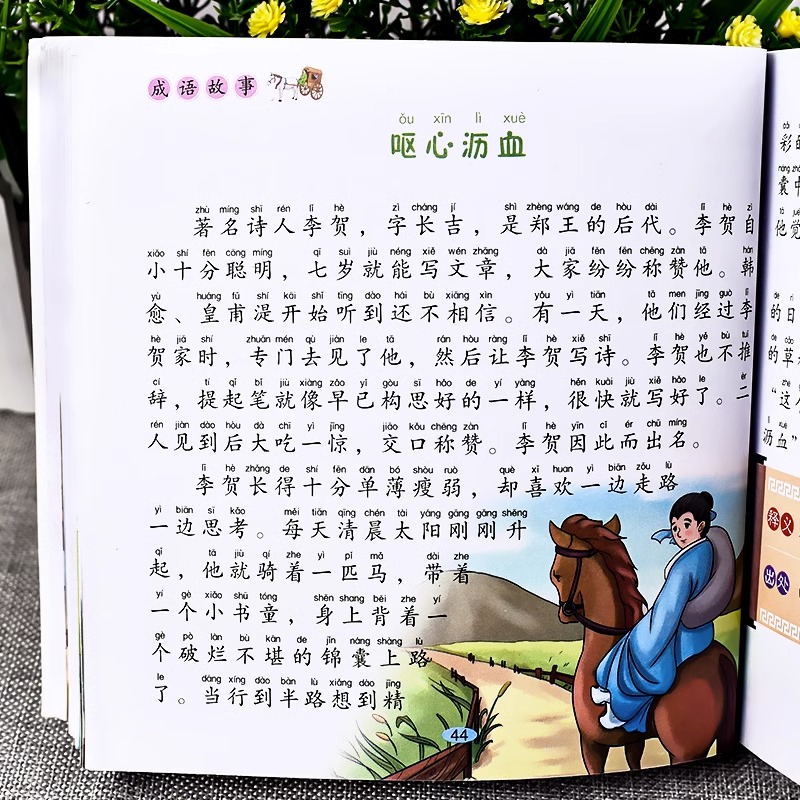 成语故事
ǒu xīn lì xuè
呕心沥血
zhù míng shī rén lǐ hè zì cháng jí shì zhèng wáng de hòu dài lǐ hè zì
著名诗人李贺，字长吉，是郑王的后代。李贺自
xiǎo shí fēn cōng míng qī suì jiù néng xiě wén zhāng dà jiā fēn fēn chēng zàn tā hán
小十分聪明，七岁就能写文章，大家纷纷称赞他。韩
yù huáng fǔ shí kāi shǐ tīng dào hái bù xiāng xìn yǒu yì tiān tā men jīng guò lǐ
愈、皇甫湜开始听到还不相信。有一天，他们经过李
hè jiā shí zhuān mén qù jiàn le tā rán hòu ràng lǐ hè xiě shī lǐ hè yě bù tuī
贺家时，专门去见了他，然后让李贺写诗。李贺也不推
cí tí qǐ bǐ jiù xiàng zǎo yǐ gòu sī hǎo de yí yàng hěn kuài jiù xiě hǎo le èr
辞，提起笔就像早已构思好的一样，很快就写好了。二
rén jiàn dào hòu dà chī yì jīng jiāo kǒu chēng zàn lǐ hè yīn cǐ ér chū míng
人见到后大吃一惊，交口称赞。李贺因此而出名。
lǐ hè zhǎng de shí fēn dān bó shòu ruò què xǐ huan yì biān zǒu lù
李贺长得十分单薄瘦弱，却喜欢一边走路
yì biān sī kǎo měi tiān qīng chén tài yáng gāng gāng shēng
一边思考。每天清晨太阳刚刚升
qǐ tā jiù qí zhe yì pǐ mǎ dài zhe
起，他就骑着一匹马，带着
yí gè xiǎo shū tóng shēn shang bēi zhe yí
一个小书童，身上背着一
gè pò làn bù kān de jǐn náng shàng lù
个破烂不堪的锦囊上路
le dāng xíng dào bàn lù xiǎng dào jīng
了。当行到半路想到精
44
彩
囊中
他觉
的日
的草
“这
沥血”
释义
出处